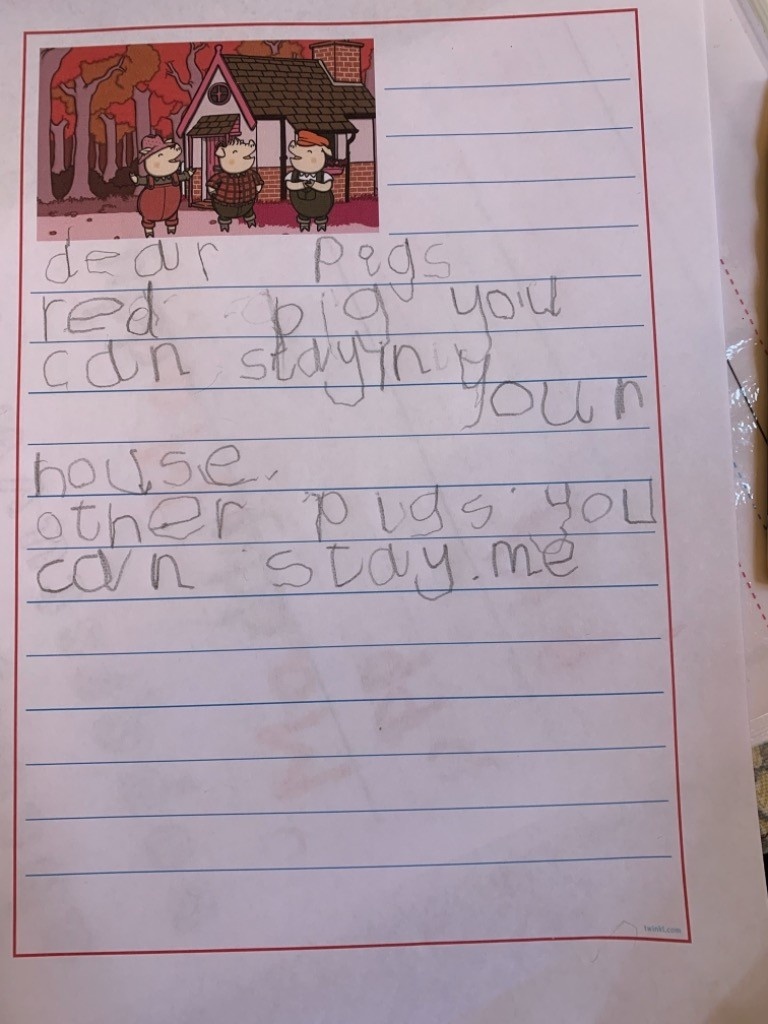 dear pigs
red pig you
can stay in y
your
house.
other pigs you
can stay. me
twinkl.com